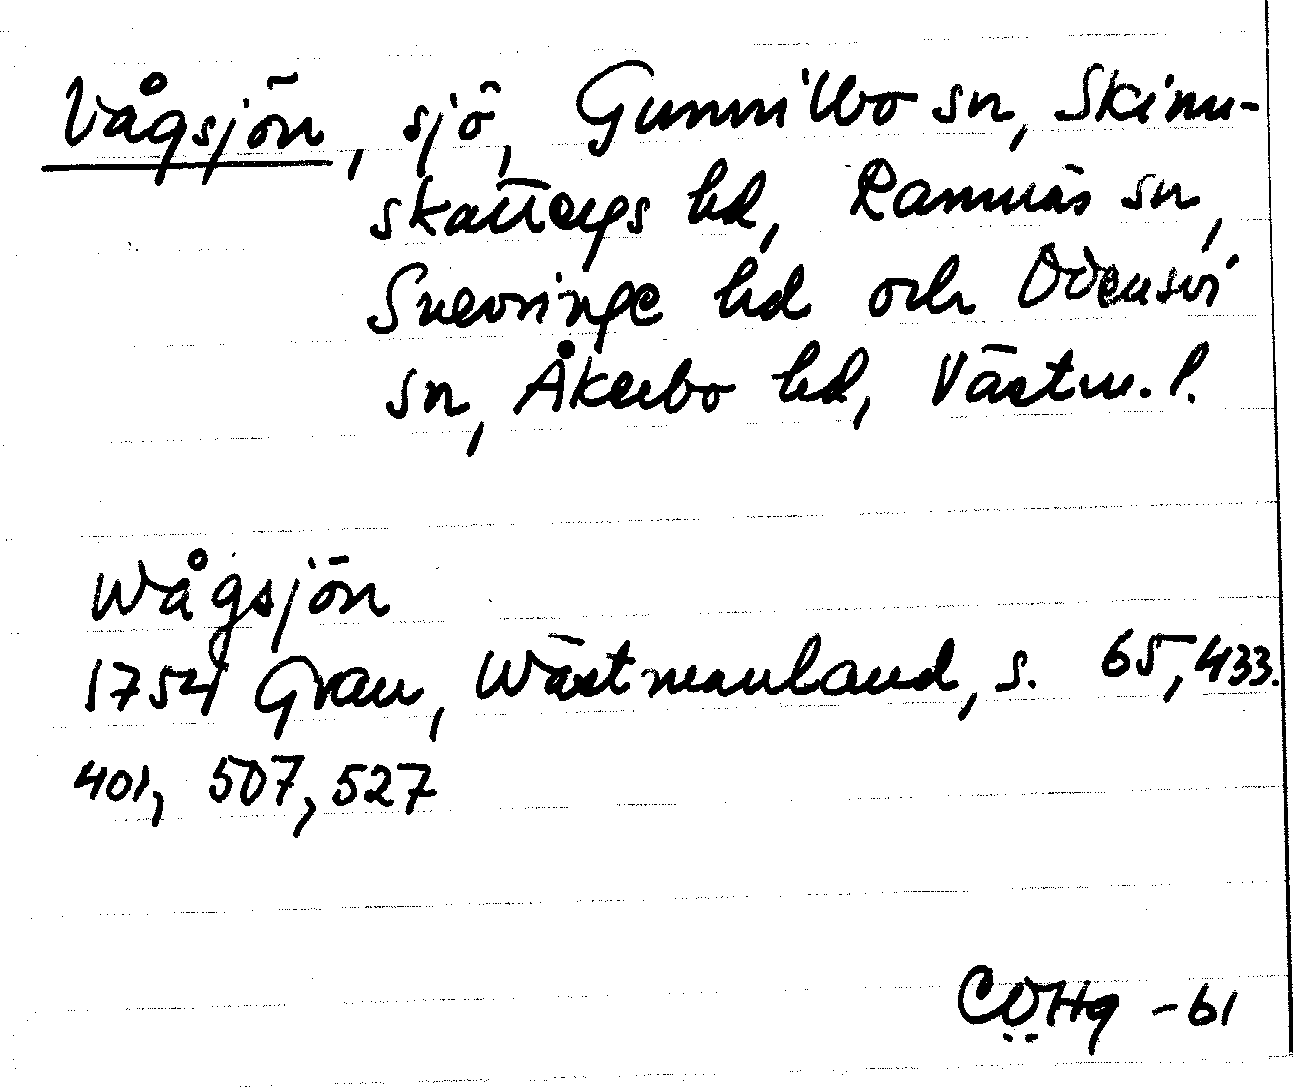 Vågsjön, sjö, Gunnilbo sn, Skinn-
skattebgs hd, Ramnäs sn,
Snevringe hd och Odensvi
sn, Åkerbo hd, Västm. l.
Wågsjön
1754 Grau, Wästmanland, s. 65, 433.
401, 507, 527
CÖHg -61